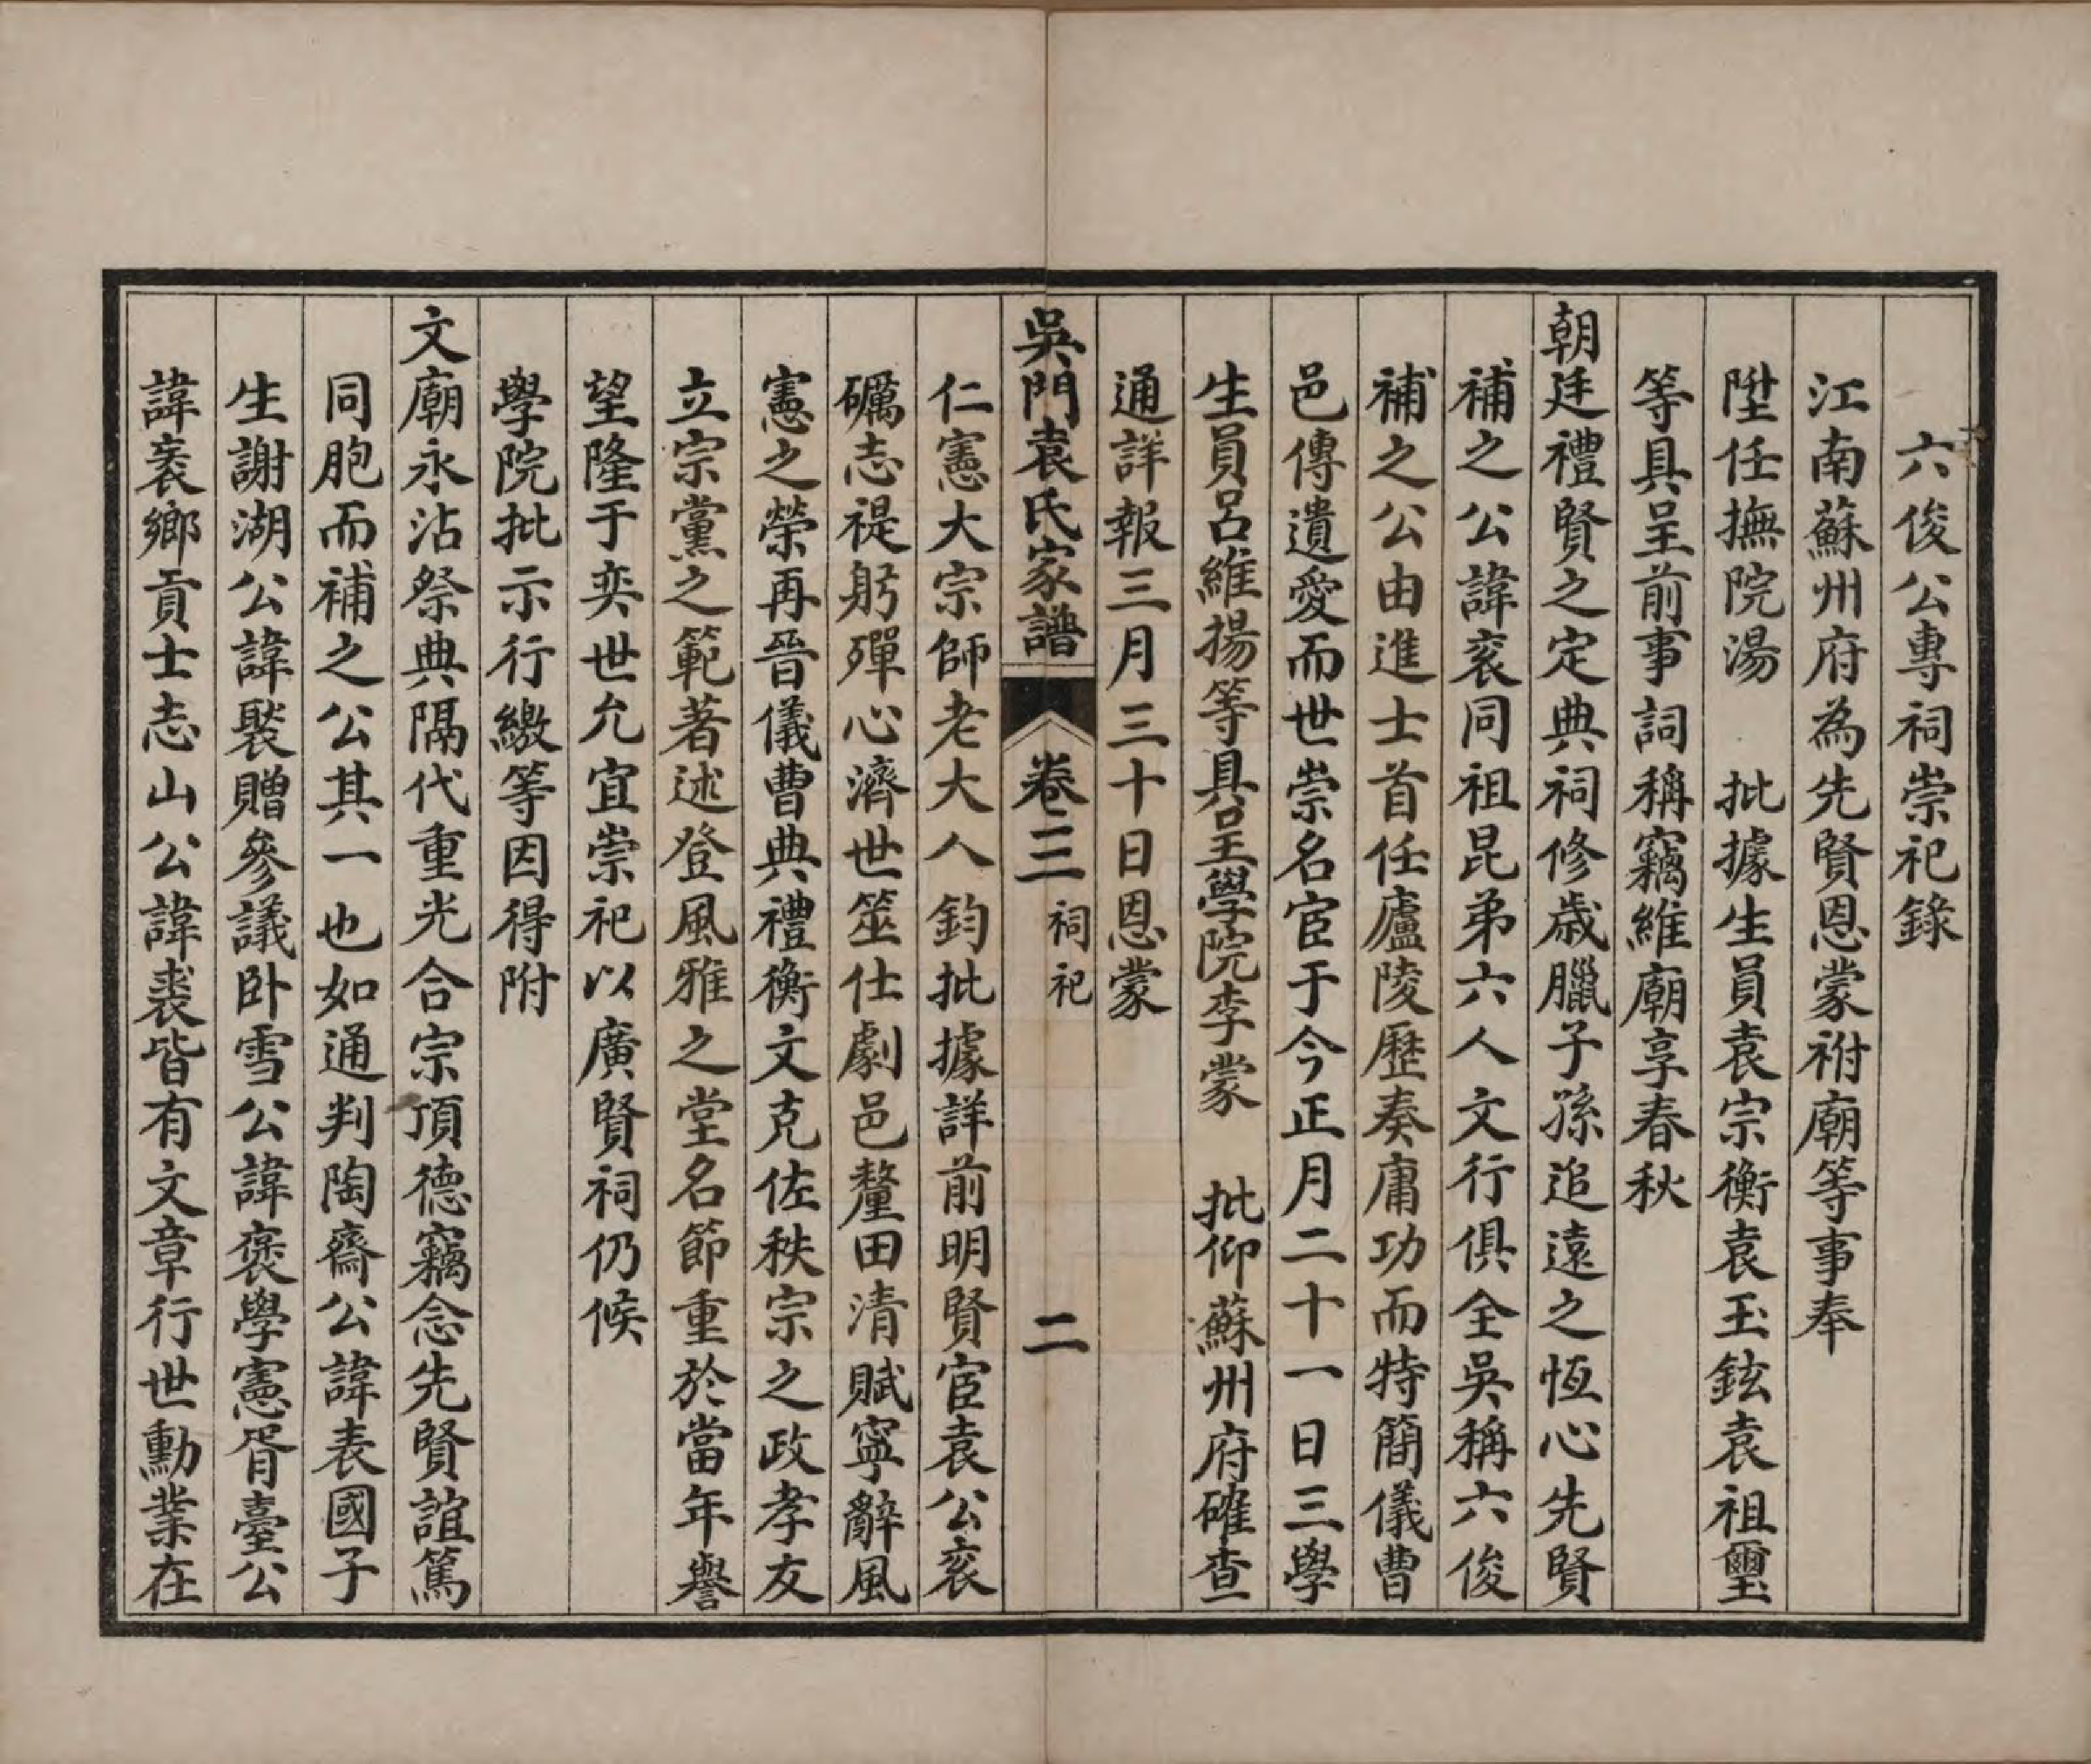 六俊公專祠崇祀錄
江南蘇州府為先賢恩蒙祔廟等事奉
陞任撫院湯　批據生員袁宗衡袁玉鉉袁祖璽
等具呈前事詞稱竊維廟享春秋
朝廷禮賢之定典祠修歲臘子孫追遠之恆心先賢
補之公諱袞同祖昆弟六人文行俱全吳稱六俊
補之公由進士首任廬陵歷奏庸功而特簡儀曹
邑傳遺愛而世崇名宦于今正月二十一日三學
生員呂維揚等具呈學院李蒙　批仰蘇州府確查
通詳報三月三十日恩蒙
吳門袁氏家譜　卷三　祠祀　二
仁憲大宗師老大人鈞批據詳前明賢宦袁公袞
礪志禔躬殫心濟世筮仕劇邑釐田清賦寧辭風
憲之榮再晉儀曹典禮衡文克佐秩宗之政孝友
立宗黨之範著述登風雅之堂名節重於當年譽
望隆于奕世允宜崇祀以廣賢祠仍候
學院批示行繳等因得附
文廟永沾祭典隔代重光合宗頂德竊念先賢誼篤
同胞而補之公其一也如通判陶齋公諱表國子
生謝湖公諱褧贈參議卧雪公諱褒學憲胥臺公
諱袠鄉貢士志山公諱裘皆有文章行世勳業在